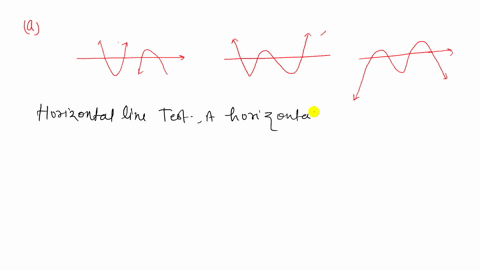 (a)
Horizontal line Test:, A horizonta